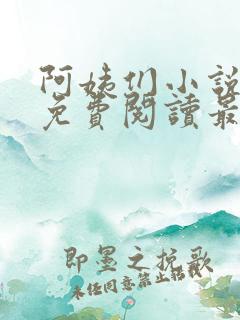 阿姨们小说
免費閱讀最
即墨之挽歌
未经同意禁止转载